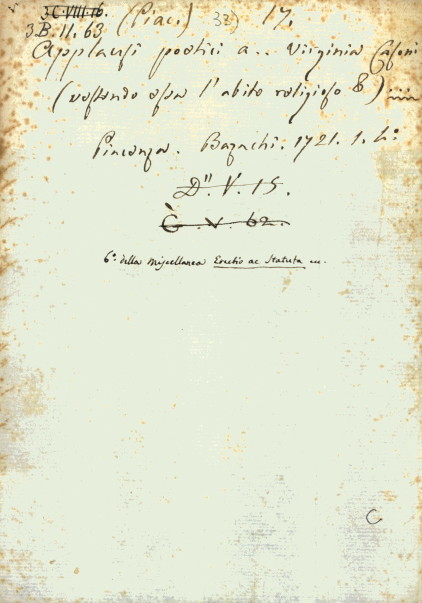 3.C.VIII.16.
3.B.11.63 (Piac.) 32) 17.
Applausi poetici a .. Virginia Casoni
(vestendo essa l'abito religioso &)
Piacenza. Bazachi. 1721. 1. h°
D". V. 15.
G. V. 62.
6.° della Miscellanea Erectio ac Statuta
C